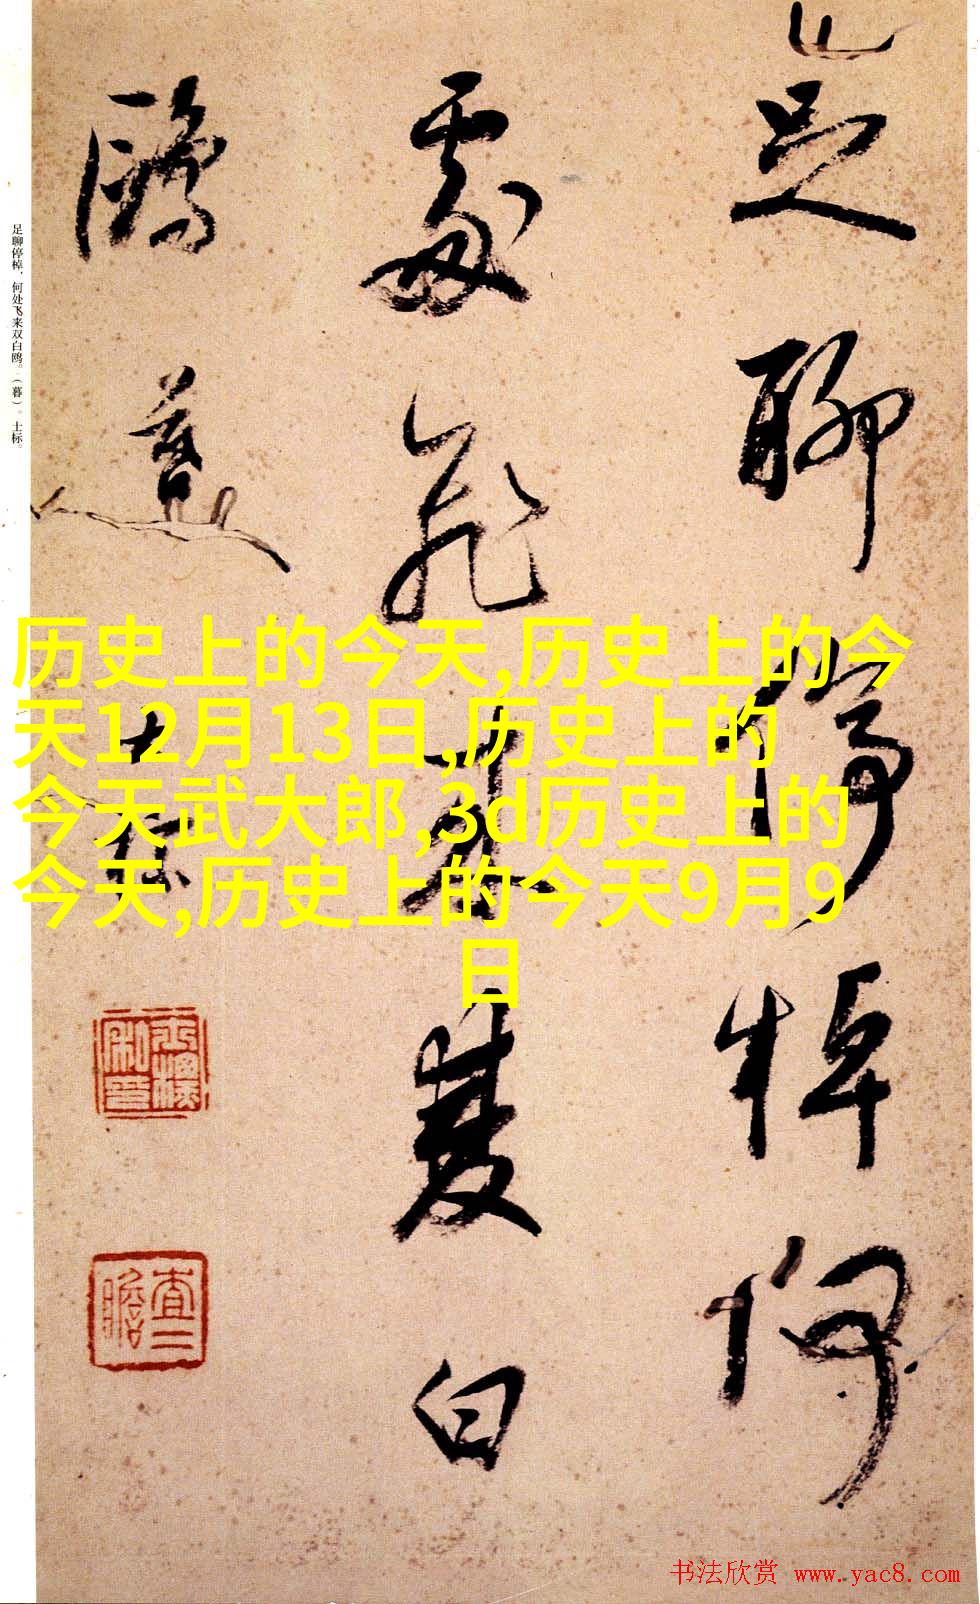 足聊停棹何
處飛來雙白
鷗 暮 士标
足聊停棹，何处飞来双白鸥。（暮）。士标。
历史上的今天,历史上的今
天12月13日,历史上的
今天武大郎,3d历史上的
今天,历史上的今天9月9
日
查二
瞻
书法欣赏 www.yac8.com